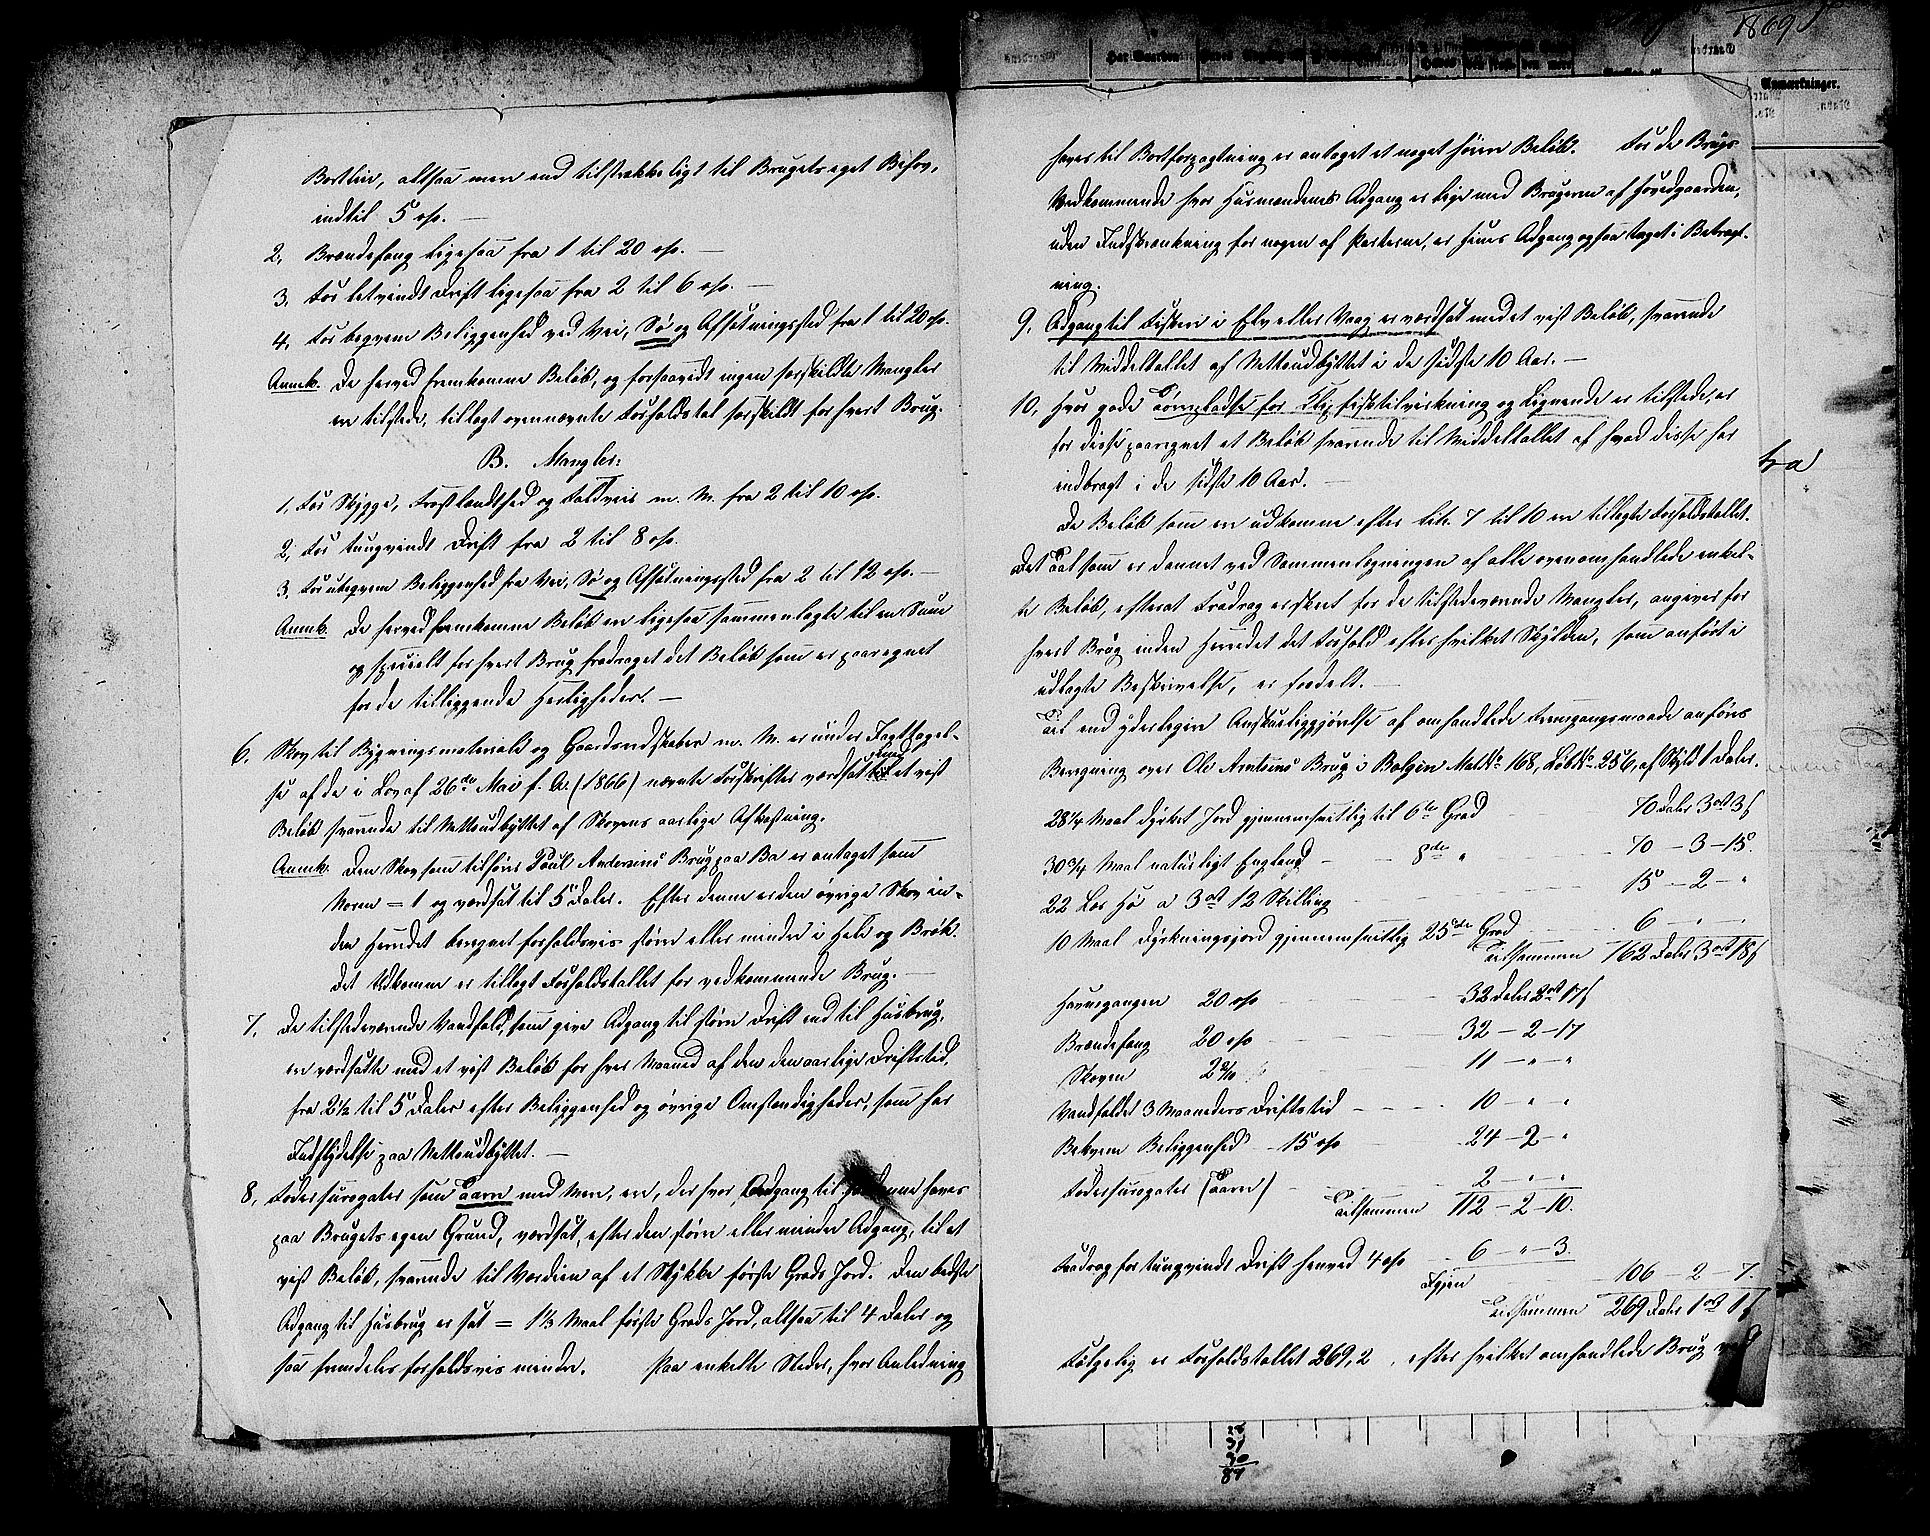 Bortleie, altsaa mere end tilstrækkeligt til Brugets eget Behov,
indtil 5 o/o. —
2, Brændefang ligesaa fra 1 til 20 o/o. —
3, For letvindt Drift ligesaa fra 2 til 6 o/o. —
4, For beqvem Beliggenhed ved Vei, Sø og Afsætningssted fra 1 til 20 o/o.
Anmk. De herved fremkomne Beløb, og forsaavidt ingen særskildte Mangler
ere tilstede, tillagt ovennævnte Forholdstal særskildt for hvert Brug.
B. Mangler:
1, For Skygge, Frostlændthed og Faldveis m. M. fra 2 til 10 o/o.
2, For tungvindt Drift fra 2 til 8 o/o.
3, For ubeqvem Beliggenhed fra Vei, Sø og Afsætningssted fra 2 til 12 o/o. —
Anmk. De herved fremkomne Beløb ere ligesaa sammenlagte til en Sum
og specielt for hvert Brug fradraget det Beløb som er paaregnet
for de tilliggende Herligheder. —
6. Skov til Bygningsmateriale og Gaardsredskaber m. M. er under Iagttagel-
se af de i Lov af 26de Mai f. A. (1866) nævnte Forskrifter værdsat med et vist
Beløb svarende til Nettoudbyttet af Skovens aarlige Afkastning.
Anmk. Den Skov som tilhører Poul Andersens Brug paa Bø er antaget som
Norm = 1 og værdsat til 5 Daler. Efter denne er den øvrige Skov in-
den Herredet beregnet forholdsvis større eller mindre i Hele og Brøk.
Det Udkomne er tillagt Forholdstallet for vedkommende Brug. —
7, De tilstedeværende Vandfald, som give Adgang til større Drift end til Husbrug,
ere værdsatte med et vist Beløb for hver Maaned af den aarlige Driftstid,
fra 2½ til 5 Daler efter Beliggenhed og øvrige Omstændigheder, som har
Indflydelse paa Nettoudbyttet. —
8, Fodersurogater som Tarre med mere, ere, der hvor Adgang til denne haves
paa Brugets egen Grund, værdsat, efter den større eller mindre Adgang, til et
vist Beløb, svarende til Værdien af et Stykke første Grads Jord. Den bedste
Adgang til Husbrug er sat = 1⅓ Maal første Grads Jord, altsaa til 4 Daler og
saa fremdeles forholdsvis mindre. Paa enkelte Steder, hvor Anledning
haves til Bortforpagtning er antaget et noget høiere Beløb. For de Brugs
Vedkommende hvor Husmændenes Adgang er lige med Brugeren af Hovedgaarden,
uden Indskrænkning for nogen af Parterne, er hines Adgang ogsaa taget i Betragt-
ning.
9, Adgang til Fiskeri i Elv eller Vaag er værdsat med et vist Beløb, svarende
til Middeltallet af Nettoudbyttet i de sidste 10 Aar. —
10, Hvor gode Tørrepladse for Klipfisktilvirkning og Lignende er tilstede, er
for disse paaregnet et Beløb svarende til Middeltallet af hvad disse har
indbragt i de sidste 10 Aar. —
De Beløb som ere udkomne efter Litr. 7 til 10 ere tillagte Forholdstallet.
Det Tal som er dannet ved Sammenlægningen af alle ovenomhandlede enkel-
te Beløb, efterat Fradrag er skeet for de tilstedeværende Mangler, angiver for
hvert Brug inden Herredet det Forhold efter hvilket Skylden, som anført i
udlagte Beskrivelse, er fordelt. —
Til end yderligere Anskueliggjørelse af omhandlede Fremgangsmaade anføres
Beregning over Ole Arntsens Brug i Bolgen Mat.No. 168, LøbNo. 256, af Skyld 1 Daler.
28¼ Maal dyrket Jord gjennemsnitlig til 6te Grad 70 Daler 3 ort 3 s
30¾ Maal naturligt England — 8de " 70 – 3 – 15.
22 Læs Hø a 3 ort 12 Skilling 15 – 2 – "
10 Maal Dyrkningsjord gjennemsnitlig 25de Grad 6 — " —
Tilsammen 162 Daler 3 ort 18 s
Havnegangen 20 o/o 32 Daler 2 ort 17 s
Brændefang 20 o/o 32 – 2 – 17
Skoven 2 2/10 11 – " – "
Vandfaldet 3 Maaneders Driftstid 10 – " – "
Bekvem Beliggenhed – 15 o/o 24 – 2 – "
Fodersurogater (Tarre) 2 – " – "
Tilsammen 112 – 2 – 10.
Fradrag for tungvindt Drift henved 4 o/o 6 – " – 3.
Igjen 106 – 2 – 7.
Tilsammen 269 Daler 1 ort 1 s
Følgelig er Forholdstallet 269,2, efter hvilket omhandlede Brug ved
1869
Anmærkninger.
25
31
30
87